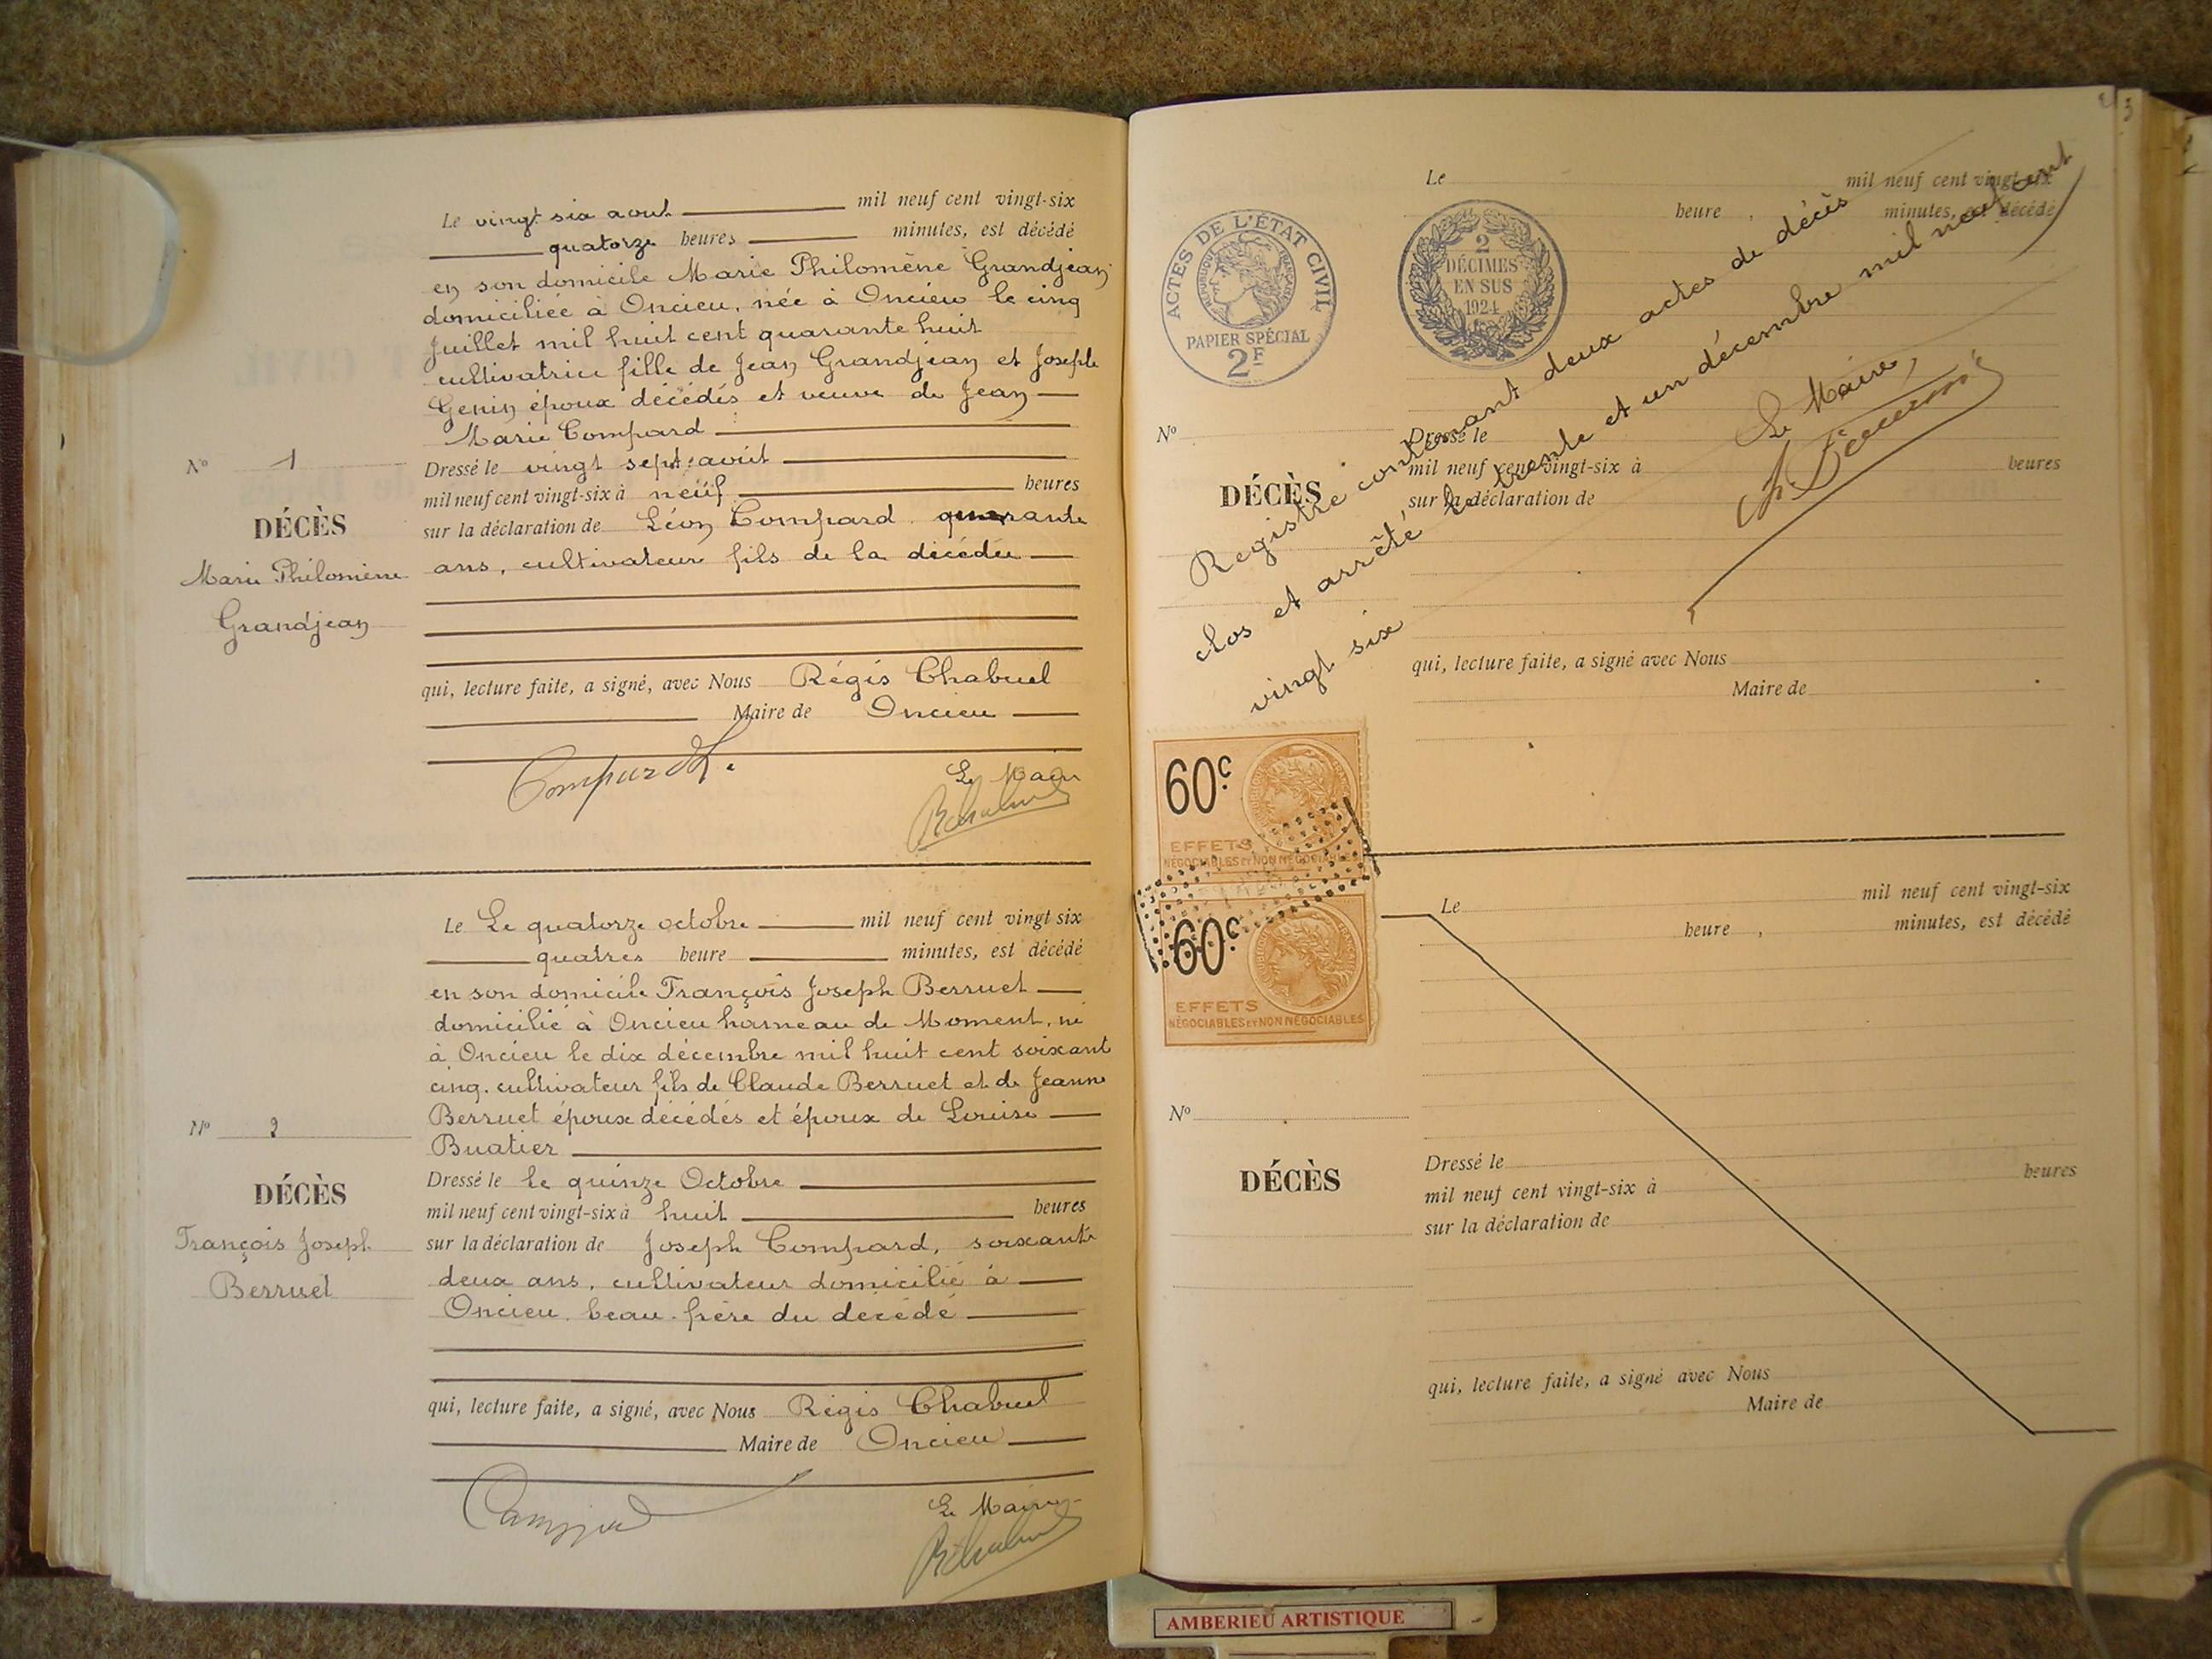 Le vingt six aout mil neuf cent vingt-six
quatorze heures minutes, est décédé
en son domicile Marie Philomène Grandjean
domiciliée à Oncieu, née à Oncieu le cinq
Juillet mil huit cent quarante huit
cultivatrice fille de Jean Grandjean et Josephe
Genin époux décédés et veuve de Jean
Marie Compard
Nº 1
DÉCÈS
Marie Philomène
Grandjean
Dressé le vingt sept août
mil neuf cent vingt-six à neuf heures
sur la déclaration de Léon Compard quarante
ans, cultivateur fils de la décédée
qui, lecture faite, a signé, avec Nous Régis Chabuel
Maire de Oncieu
Compard
Le Maire
RChabuel
Le Le quatorze octobre mil neuf cent vingt six
quatres heure minutes, est décédé
en son domicile François Joseph Berruet
domicilié à Oncieu hameau de Moment, né
à Oncieu le dix décembre mil huit cent soixant
cinq. cultivateur fils de Claude Berruet et de Jeanne
Berruet époux décédés et époux de Louise
Buatier
Nº 2
DÉCÈS
François Joseph
Berruet
Dressé le le quinze Octobre
mil neuf cent vingt-six à huit heures
sur la déclaration de Joseph Compard, soixante
deux ans, cultivateur domicilié à
Oncieu. beau-frère du décédé
qui, lecture faite, a signé, avec Nous Régis Chabuel
Maire de Oncieu
Compard
Le Maire
RChabuel
3
ACTES DE L'ÉTAT CIVIL
RÉPUBLIQUE FRANÇAISE
PAPIER SPÉCIAL
2F
2
DÉCIMES
EN SUS
1924
Le mil neuf cent vingt-six
heure , minutes, est décédé
Nº
DÉCÈS
Dressé le
mil neuf cent vingt-six à heures
sur la déclaration de
qui, lecture faite, a signé avec Nous
Maire de
Registre contenant deux actes de décès
clos et arrêté le trente et un décembre mil neuf cent
vingt six
Le Maire,
60c
EFFETS
NÉGOCIABLES ET NON NÉGOCIABLES
60c
EFFETS
NÉGOCIABLES ET NON NÉGOCIABLES
Le mil neuf cent vingt-six
heure , minutes, est décédé
Nº
DÉCÈS
Dressé le
mil neuf cent vingt-six à heures
sur la déclaration de
qui, lecture faite, a signé avec Nous
Maire de
AMBERIEU ARTISTIQUE